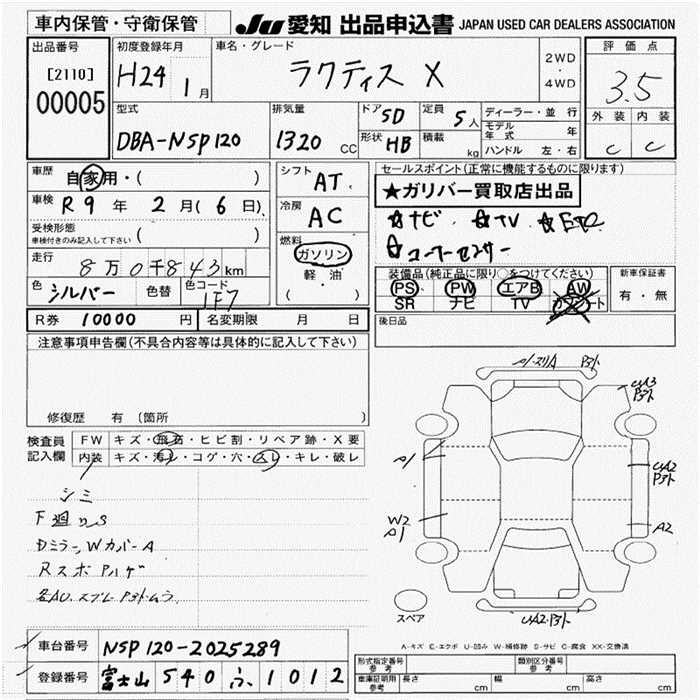 車内保管・守衛保管
JU 愛知 出品申込書 JAPAN USED CAR DEALERS ASSOCIATION
出品番号
[2110]
00005
初度登録年月
H24 1月
車名・グレード
ラクティス X
2WD
・
4WD
評価点
3.5
外装 内装
C C
型式
DBA-NSP120
排気量
1320 CC
ドア 5D
形状 HB
定員 5人
積載 kg
ディーラー・並行
モデル年式 年
ハンドル 左・右
車歴 自家用・( )
車検 R9年 2月(6日)
受検形態
車検付きのみ記入して下さい ( )
走行 8万0千843km
色 シルバー 色替 色コード 1F7
シフト AT
冷房 AC
燃料
ガソリン
軽・油
( )
セールスポイント(正常に機能するものに限ります)
★ガリバー買取店出品
★ナビ. ★TV ★ETC
★コーナーセンサー
装備品(純正品に限り○をつけてください)
PS PW エアB AW
SR ナビ TV カワシート
新車保証書
有・無
R券 10000円 名変期限 月 日
後日品
注意事項申告欄(不具合内容等は具体的に記入して下さい)
修復歴 有 (箇所
検査員記入欄
FW キズ・飛石・ヒビ割・リペア跡・X要
内装 キズ・汚れ・コゲ・穴・スレ・キレ・破レ
シミ
F廻りS
Dミラー,WカバーA
RスポPハゲ
P外
UA3
P外
A1
UA2
P外
W2
A1
A2
UA2・P外
スペア
A-キズ E-エクボ U-凹み W-補修跡 S-サビ C-腐食 XX-交換済
車台番号 NSP120-2025289
登録番号 富士山 540 ふ 1012
形式指定番号 参考
類別区分番号 参考
車庫証明用 参考 長さ cm 幅 cm 高さ cm